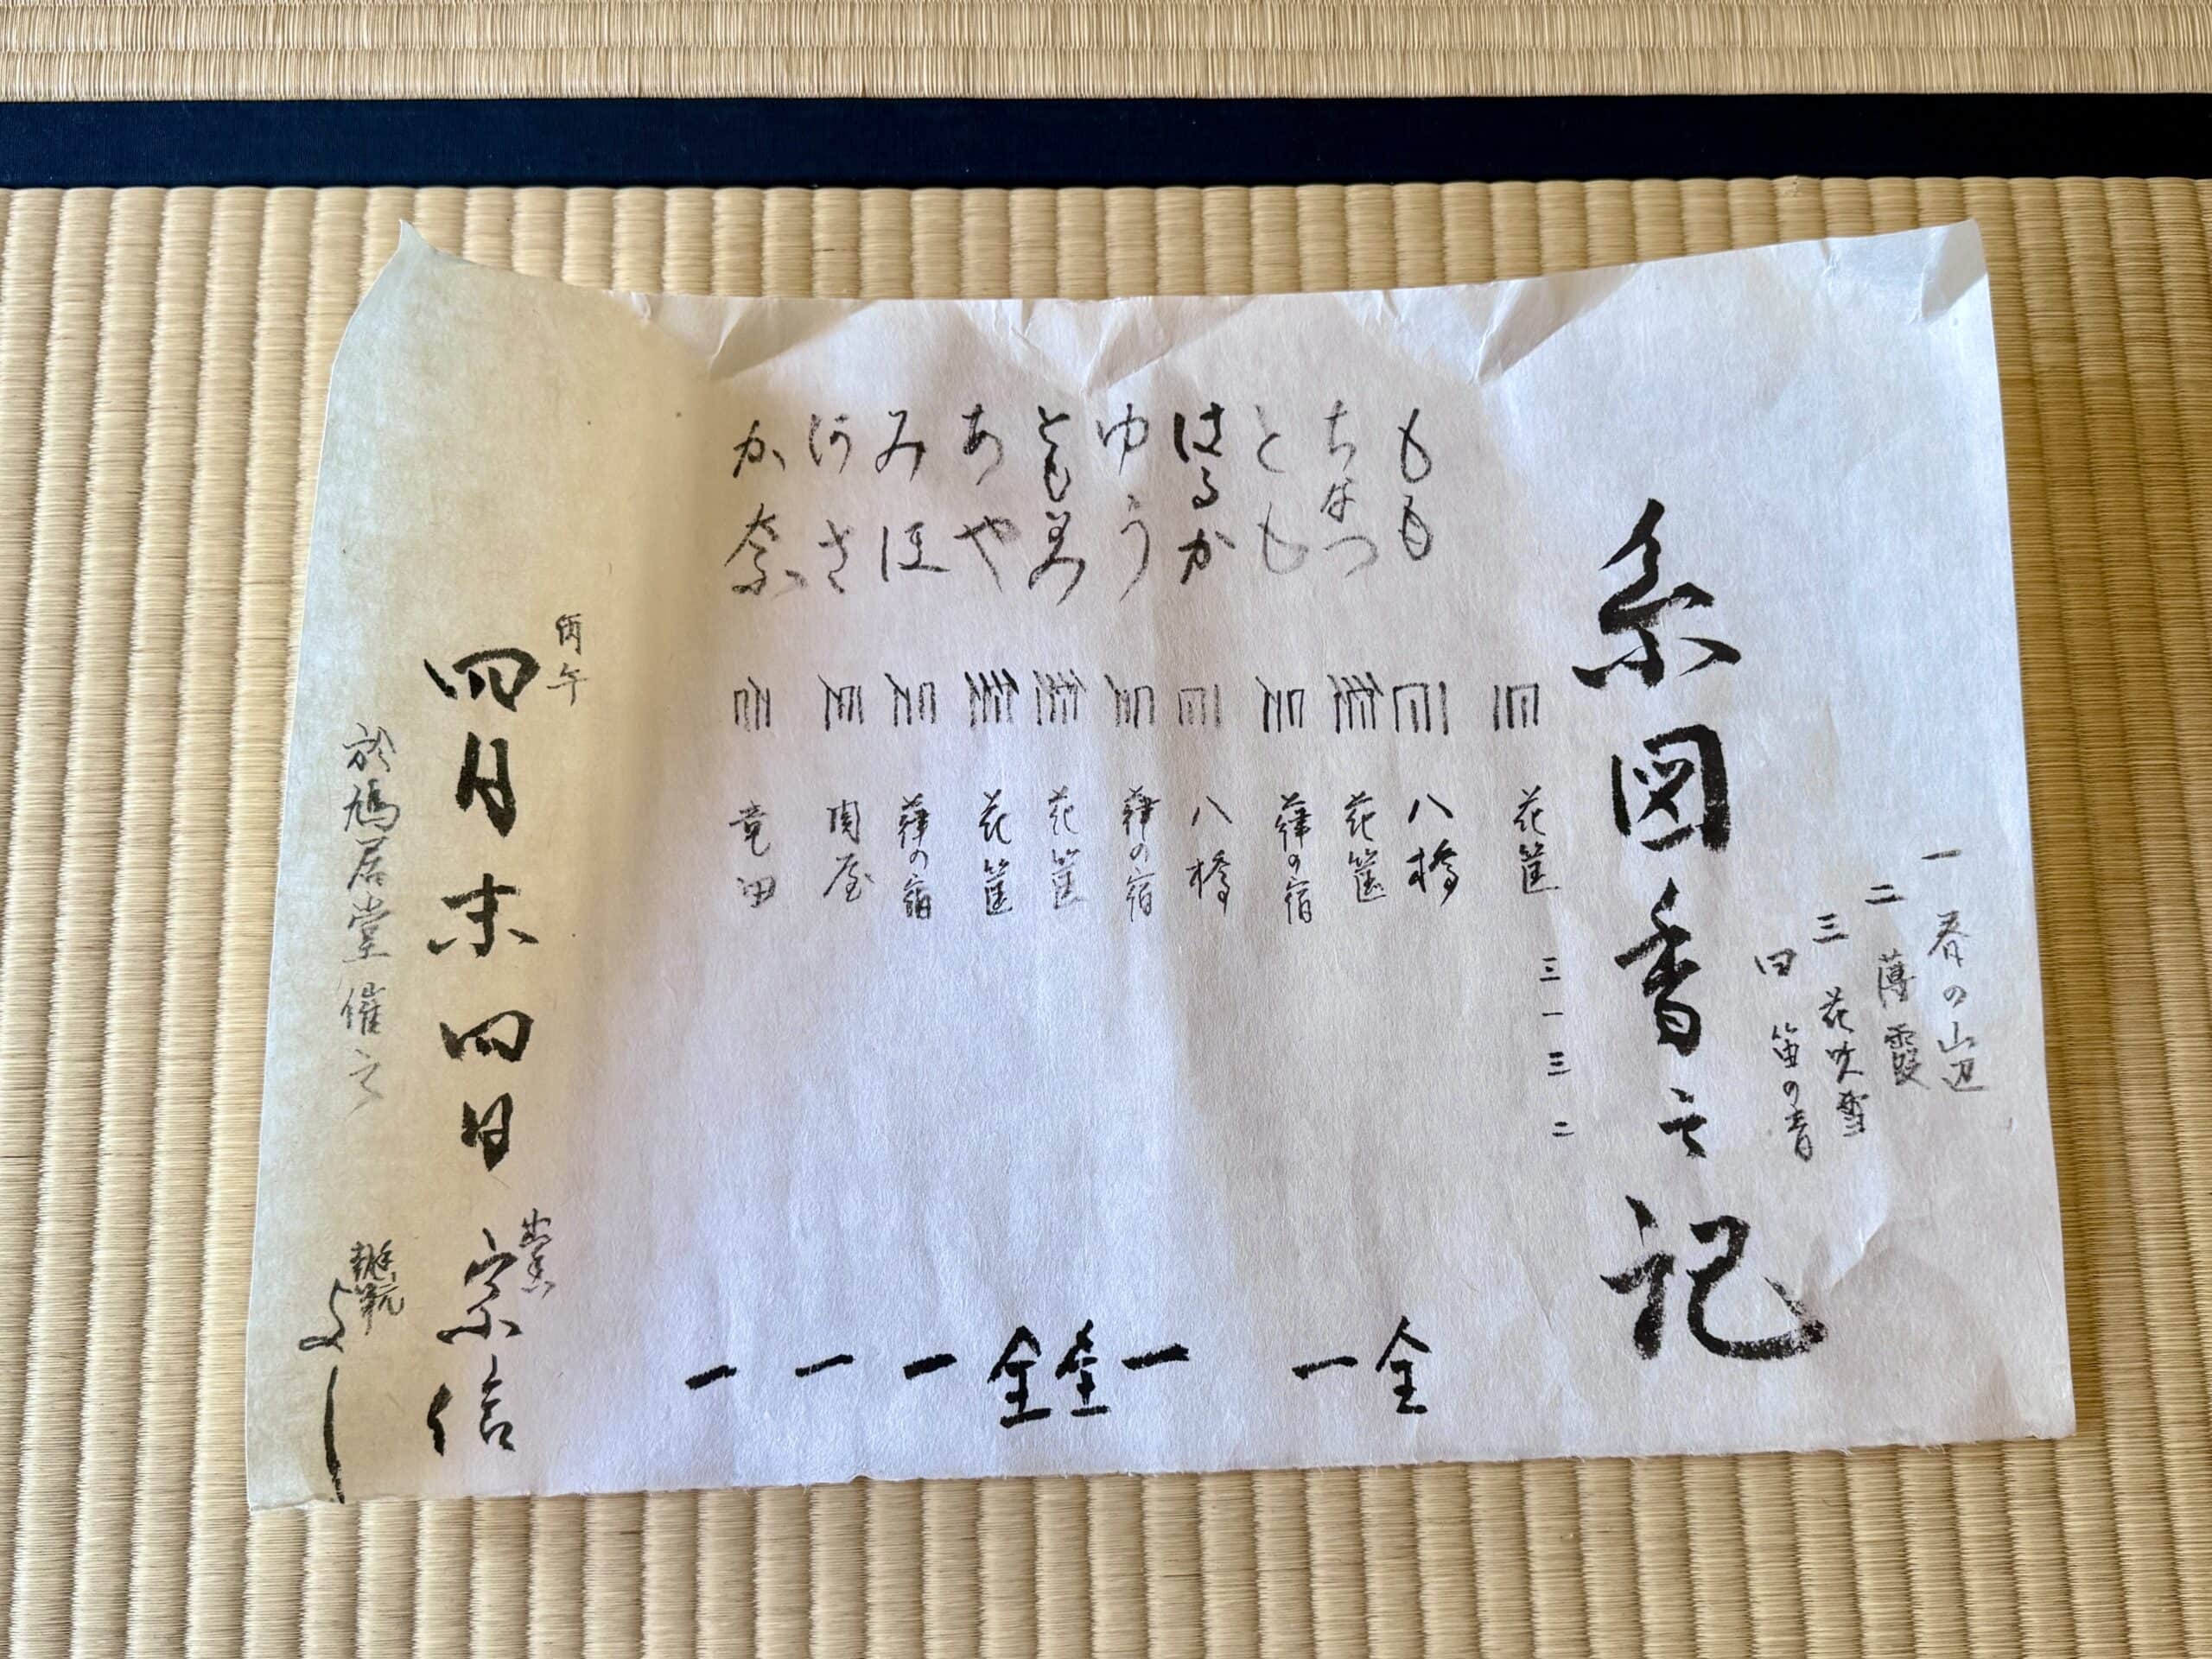 一 春の山辺
二 薄霞
三 花吹雪
四 笛の音
系図香之記
花筐 三一三二
もも 八橋 全
ちなつ 花筐 一
とも 蘀の宿
はるか 八橋
ゆう 蘀の宿 一
とも美 花筐 全
あや 花筐 全
みほ 蘀の宿 一
関屋 一
か奈 竜田 一
丙午
四月末四日
出香 宗信
於鳩居堂催之
執筆